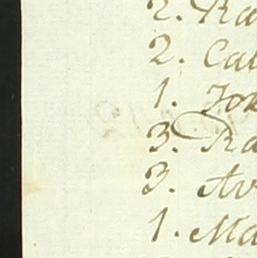 2. Ra
2. Cal
1. Joh
3. Ra
3. Av
1. Ma